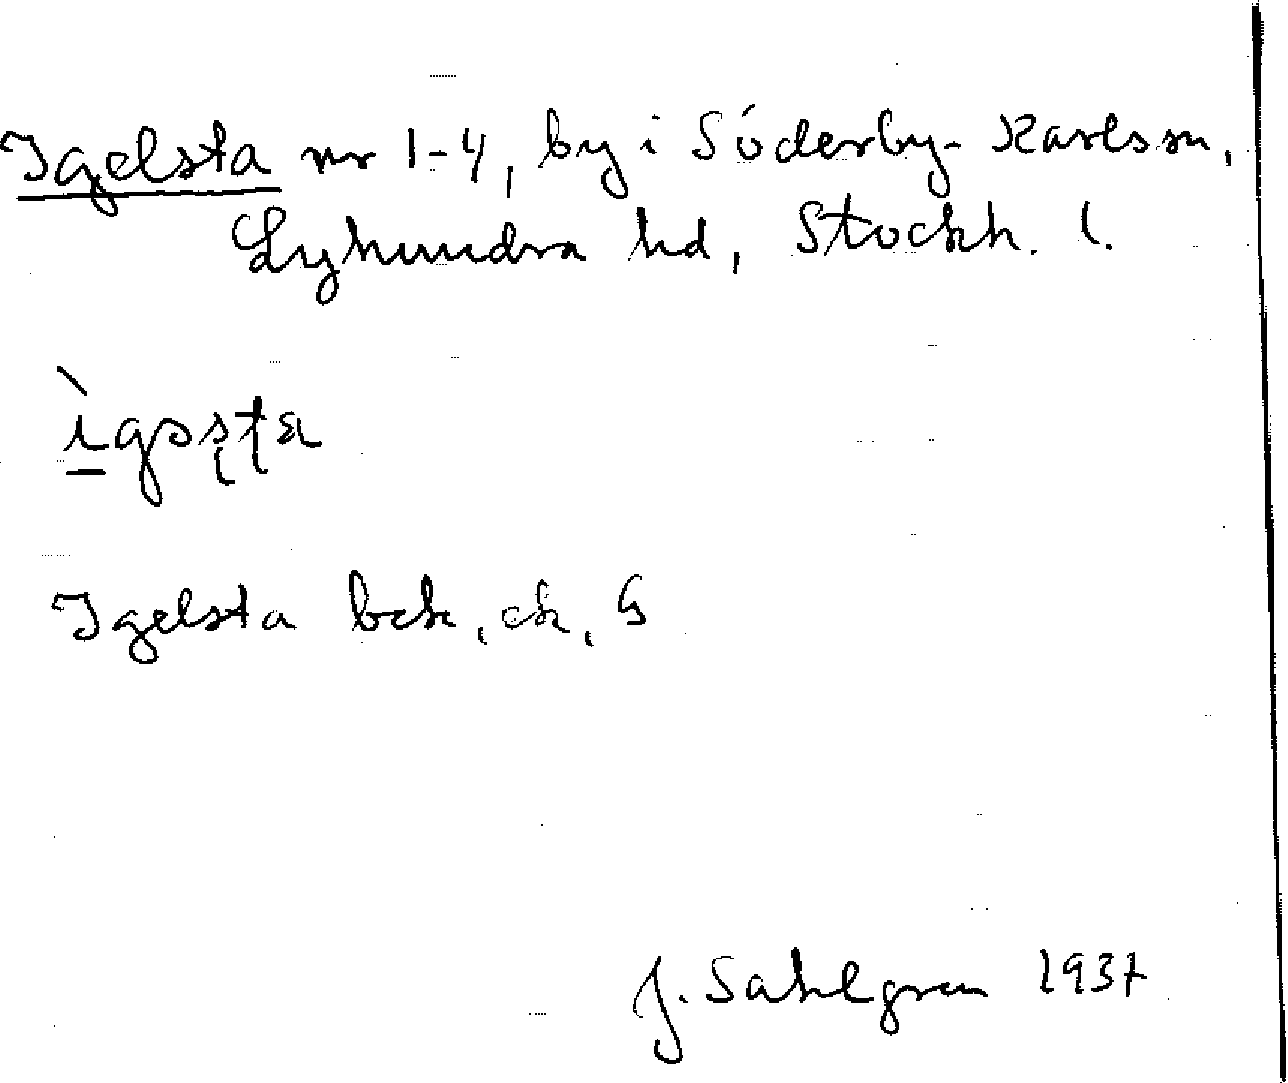 Igelsta nr 1-4, by i Söderby-Karlssn,
Lyhundra hd, Stockh. l.
Igelsta bek, ek, G
J. Sahlgren 1937